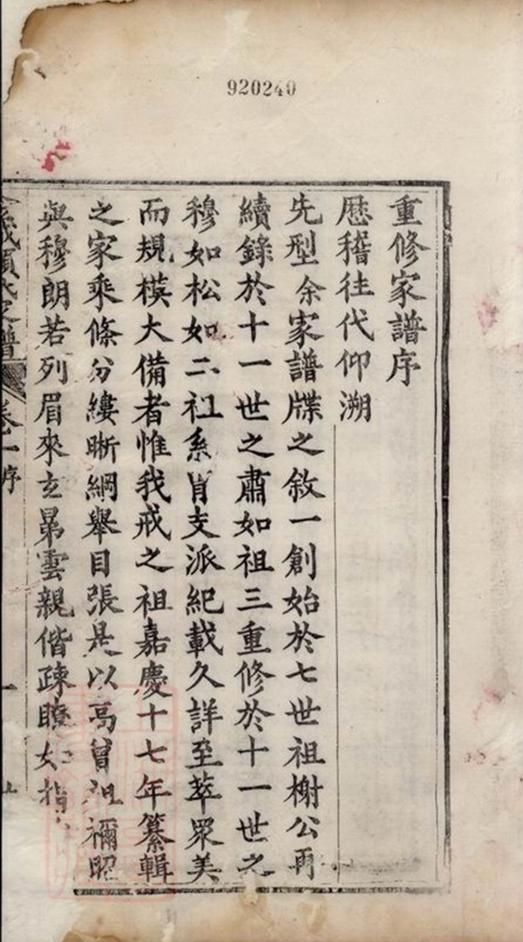 920240
重修家譜序
歷稽往代仰溯
先型余家譜牒之敘一創始於七世祖榭公再
續錄於十一世之肅如祖三重修於十一世之
穆如松如二祖系胄支派紀載久詳至萃眾美
而規模大備者惟我戒之祖嘉慶十七年纂輯
之家乘條分縷晰綱舉目張是以高曾祖禰昭
與穆朗若列眉來玄晜雲親偕疎瞭如指
氏家譜
卷一序
一